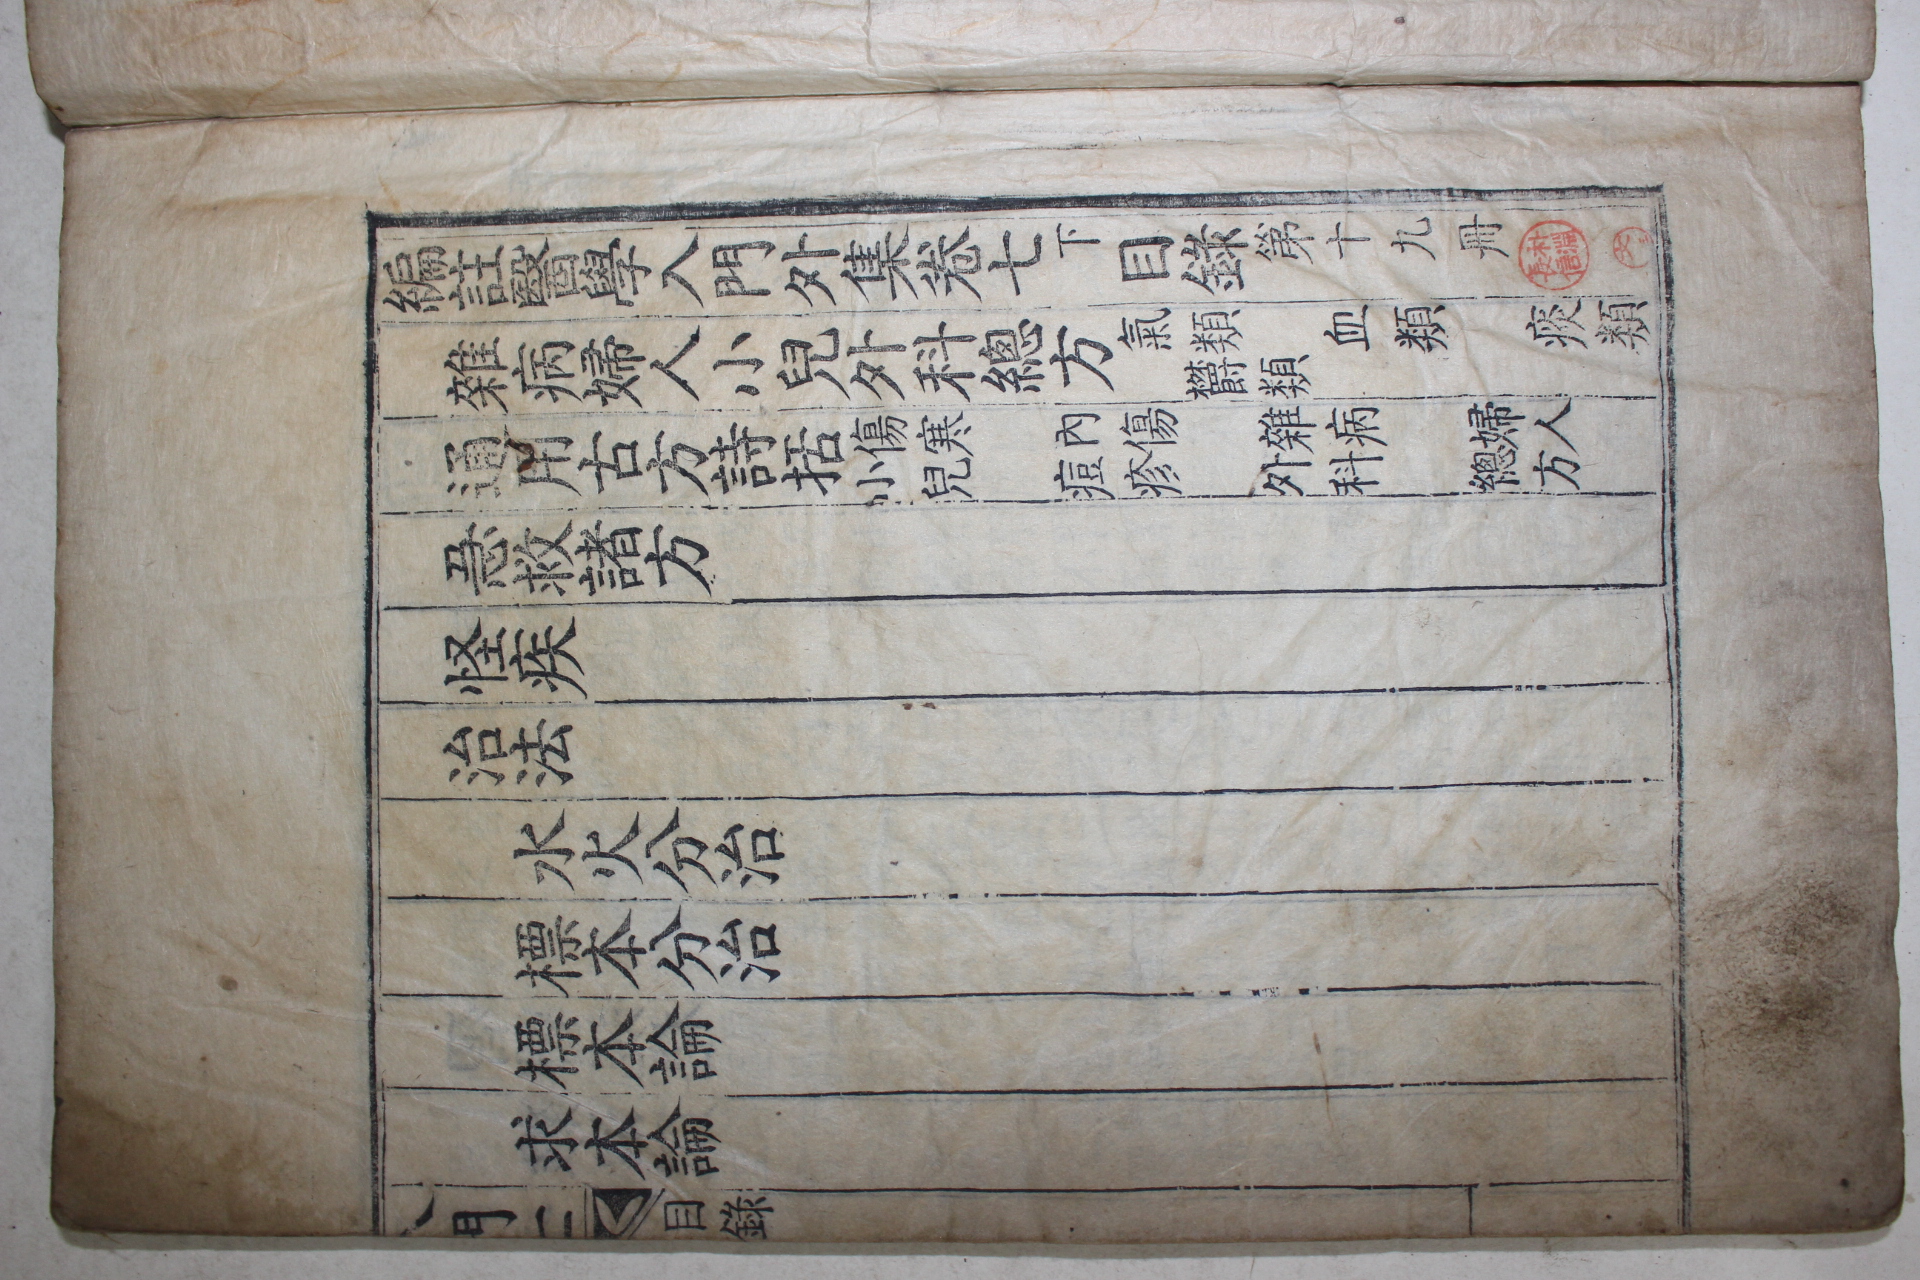 編註醫學入門外集卷七下目錄第十九冊
雜病婦人小兒外科總方氣類 血類 痰類
欝類
通用古方詩括傷寒 內傷 雜病 婦人
小兒 痘疹 外科 總方
急救諸方
怪疾
治法
水火分治
標本分治
標本論
求本論
入門 目錄